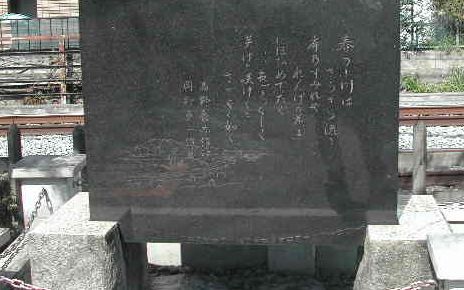 春の小川は
さらさら流る
岸のすみれや
れんげの花に
色うつくしく
咲けよ咲けよと
ささやく如く
高野辰之作詞
岡野貞一作曲